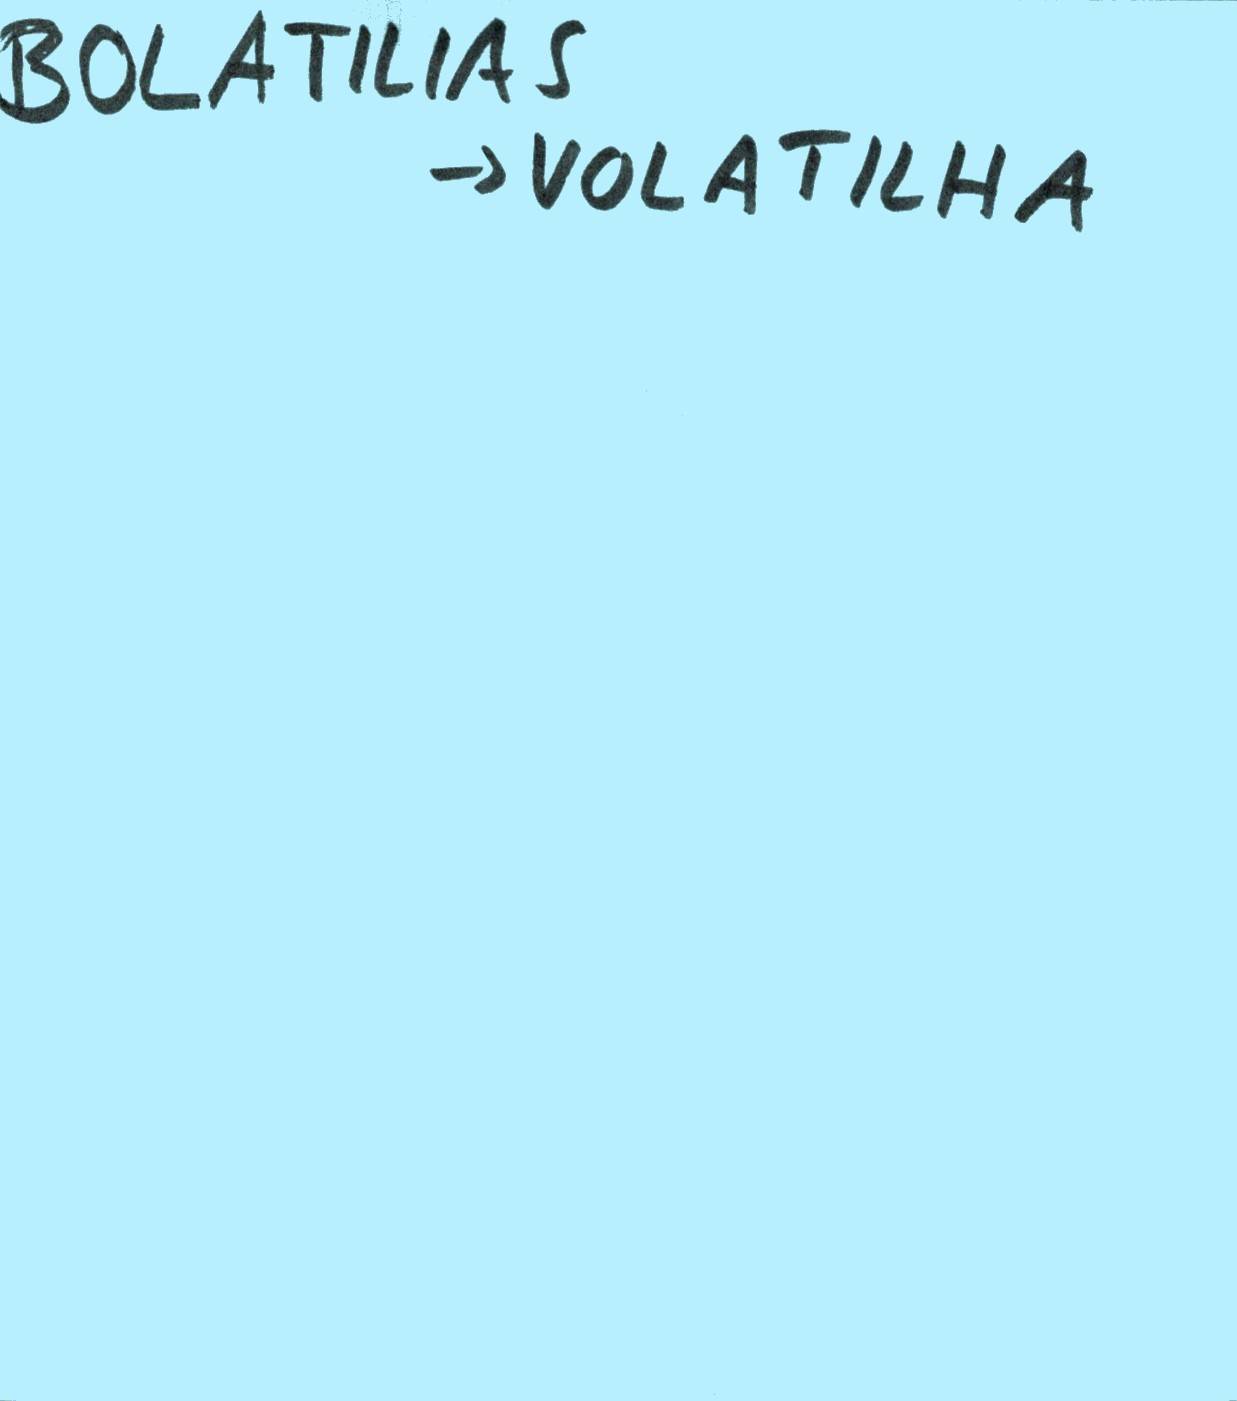 BOLATILIAS
→VOLATILHA